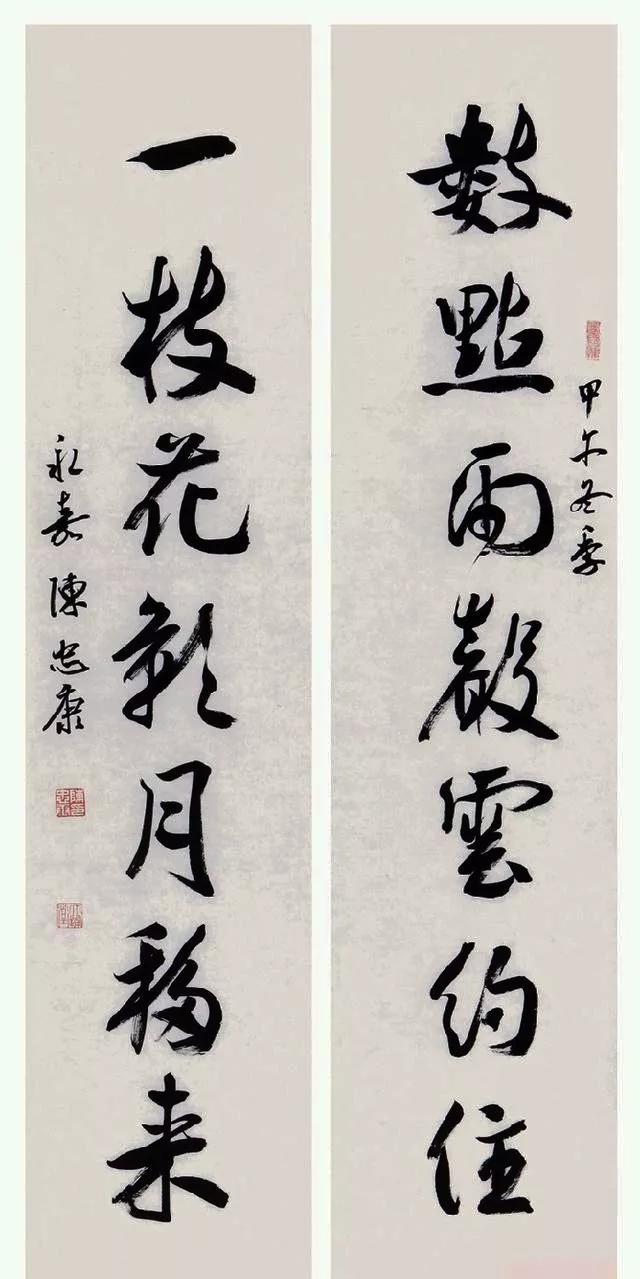 甲午冬季
數點雨聲雲約住
一枝花影月移来
永嘉陳忠康